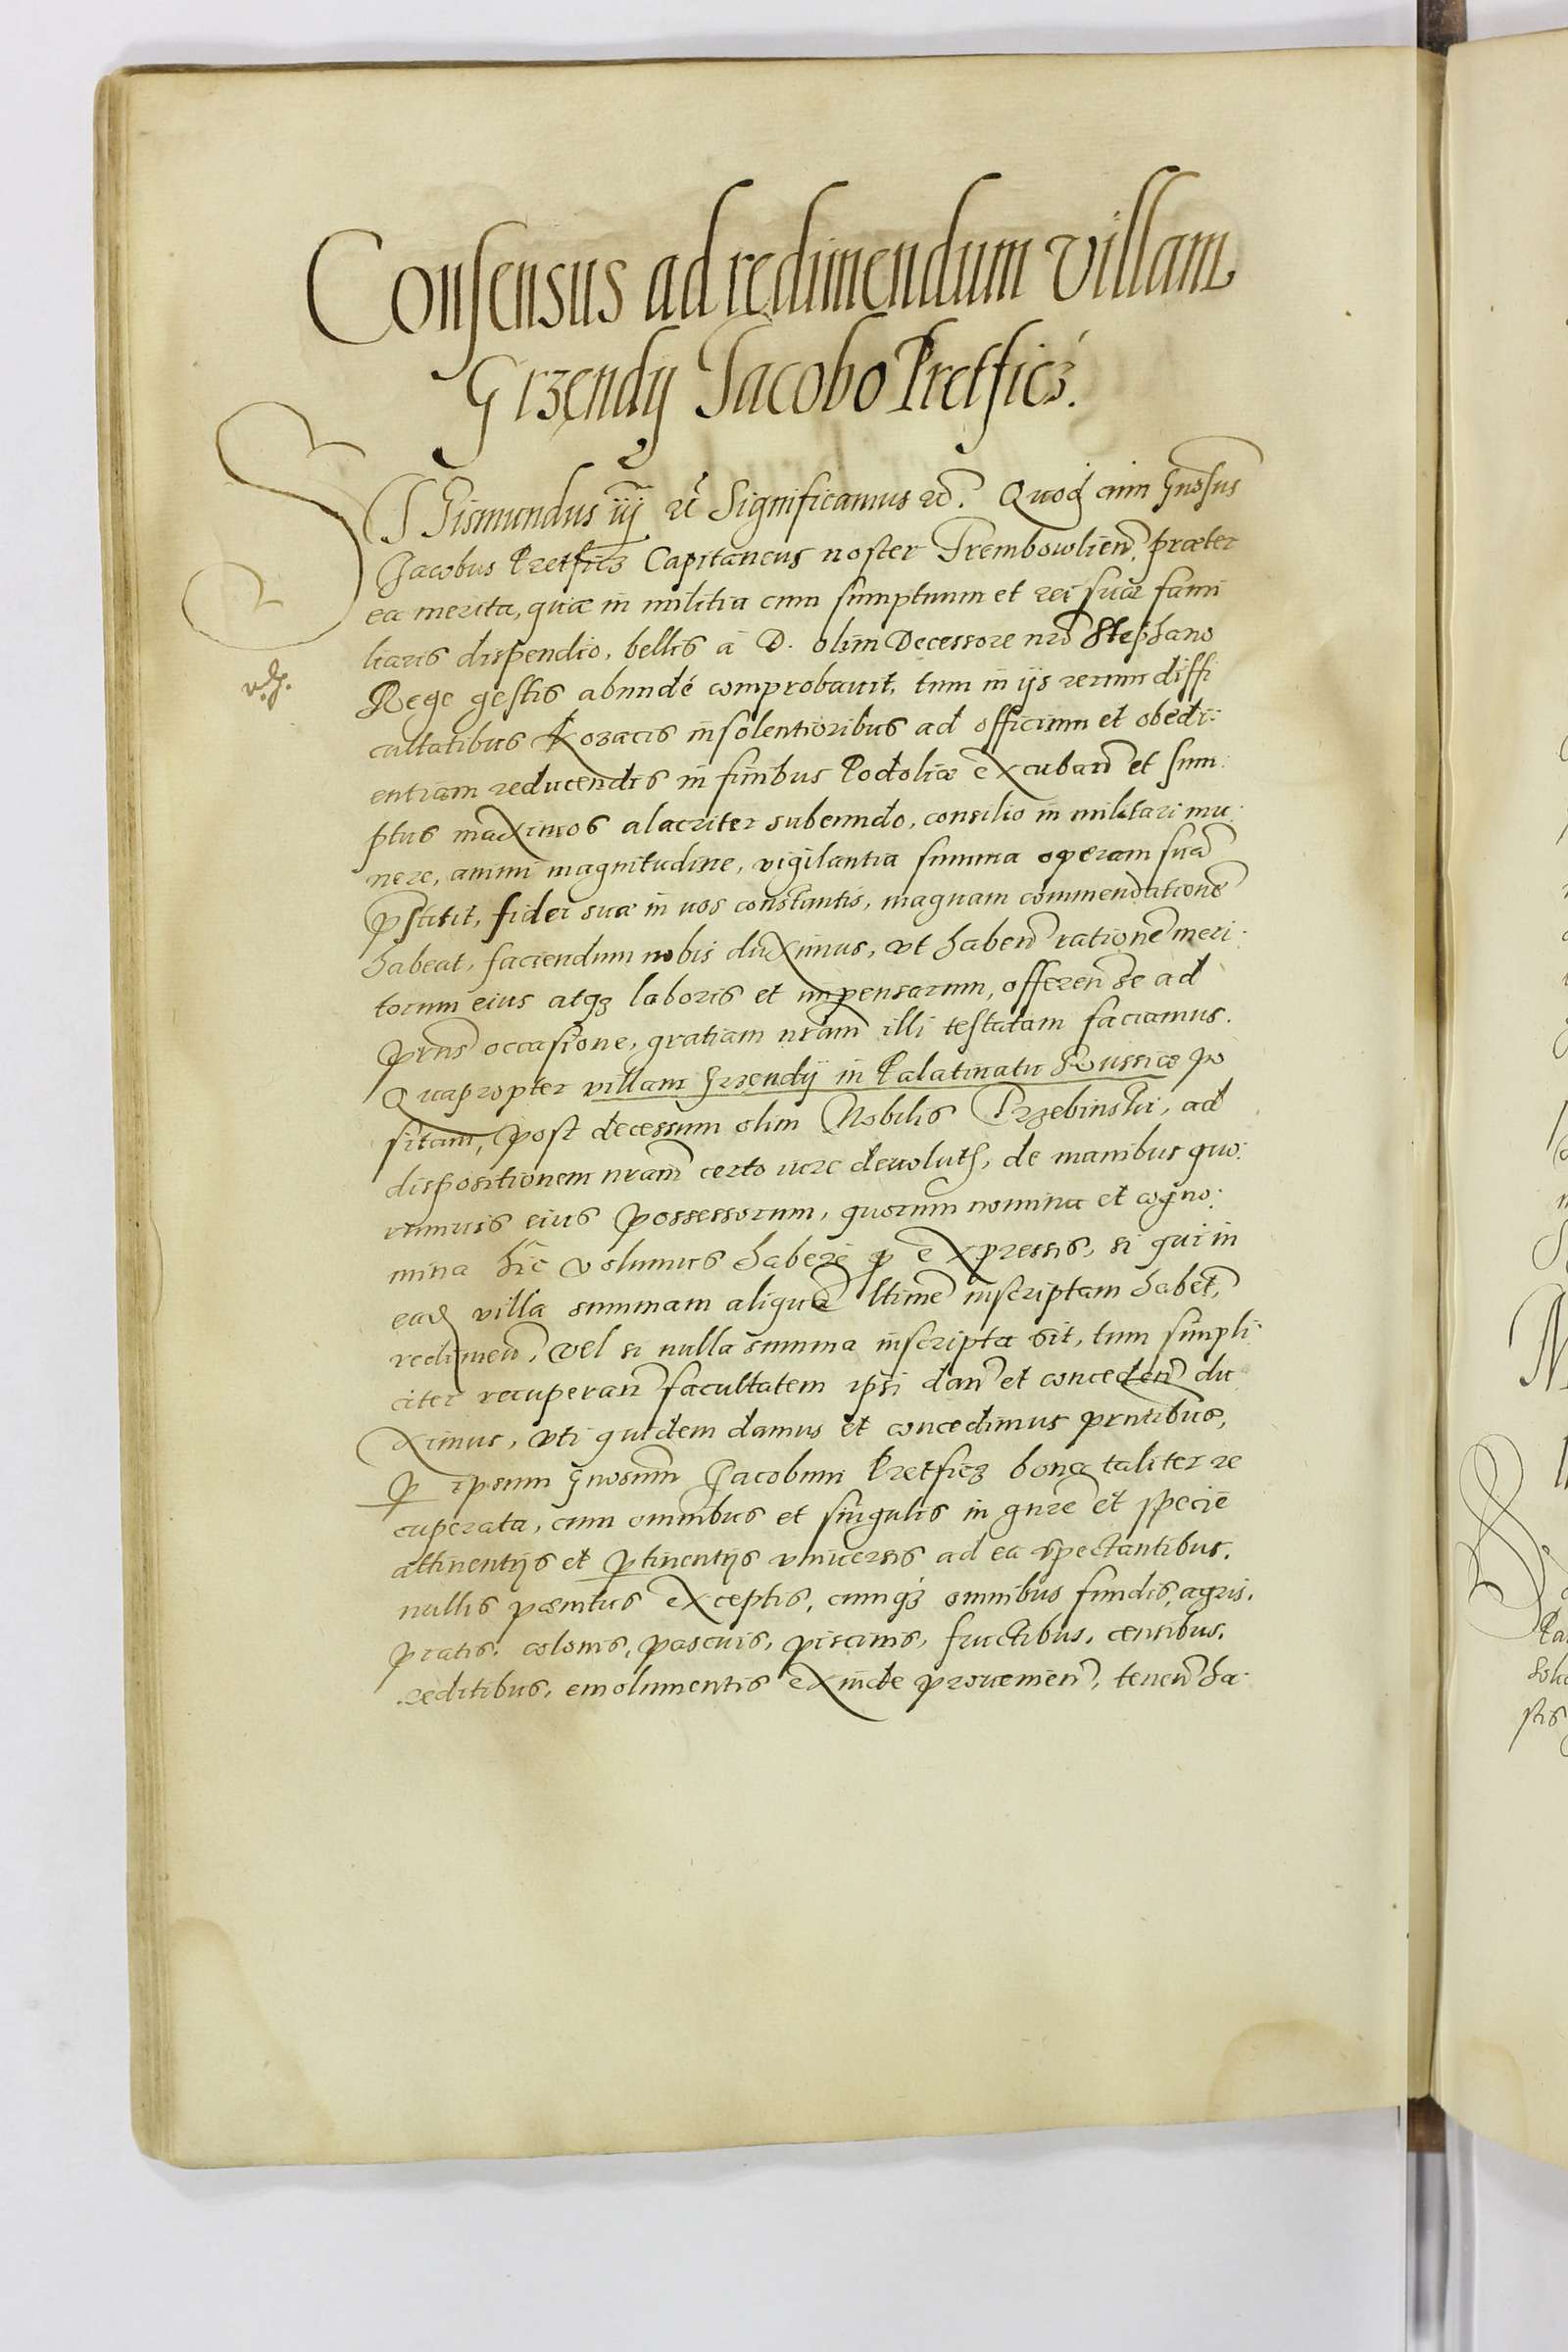 Consensus ad redimendum villam
Grzendy Jacobo Pretficz.
Sigismundus iij etc̃ Significamus etc̃. Quod cum Gnosus
Jacobus Pretficz Capitaneus noster Trembowlien̄. præter
ea merita, quæ in militia cum sumptuum et rei suæ fami
liaris dispendio, bellis a D. olim Decessore nr̄o Stephano
Rege gestis abundé comprobavit, tum in ijs rerum diffi
cultatibus Kozacis insolentioribus ad officium et obedi:
entiam reducendis in finibus Podoliæ excuban̄ et sum:
ptus maximos alacriter subeundo, consilio in militari mu:
nere, animi magnitudine, vigilantia summa operam suā
p̄stitit, fidei suæ in nos constantis, magnam commendationē
habeat, faciendum nobis duximus, vt haben̄ rationē meri:
torum eius atq₃ laboris et impensarum, offeren̄ se ad
p̄rn̄s occasione, gratiam nr̄am illi testatam faciamus.
Quapropter villam Grzendy in Palatinatu Russiæ po
sitam, post decessum olim Nobilis Przebinski, ad
dispositionem nr̄am certo iure devolut, de manibus quo:
rumuis eius possessorum, quorum nomina et cogno:
mina hic volumus haberj ꝓ expressis, si qui in
ead villa summam aliquā ltime inscriptam habet,
redimen̄, vel si nulla summa inscripta sit, tum simpli:
citer recuperan̄ facultatem ipsi dan̄ et conceden̄ du
ximus, vti quidem damus et concedimus prn̄tibus,
ꝑ ipsum Gnosum Jacobum Pretficz bona taliter re
cuperata, cum omnibus et singulis in gn̄re et specie
attinentijs et ꝑtinentijs vniuersis ad ea spectantibus,
nullis pænitus exceptis, cumq₃ omnibus fundis, agris,
pratis, colonis, pascuis, piscinis, fructibus, censibus,
reditibus, emolumentis exinde provenien̄, tenen̄ ha: